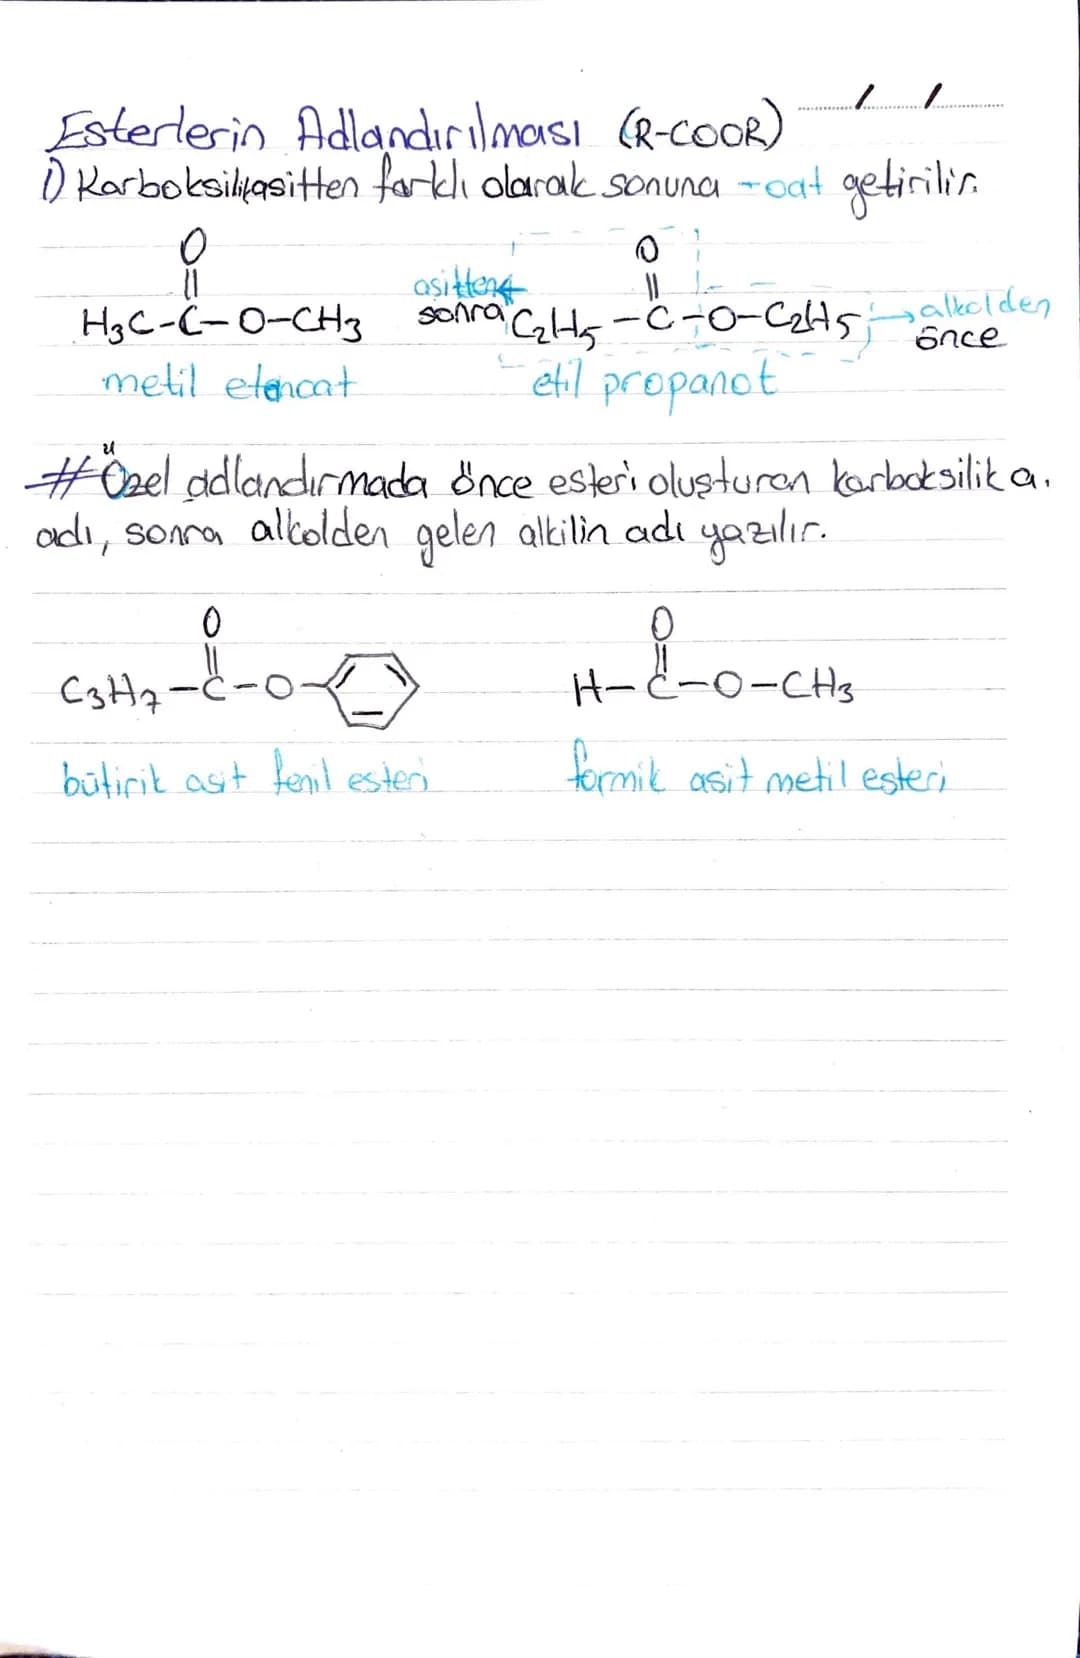 Esterlerin Adlandırılması (R-COOR)
/ /
1) Karboksilikasitten farklı olarak sonuna -oat getirilir.
O
O
asitten
H3C-C-O-CH3
sonra
C2H5-C-O-C2H5
alkolden
önce
metil etanoat
etil propanot
# Özel adlandırmada önce esteri oluşturan karboksilik a.
adı, sonra alkolden gelen alkilin adı yazılır.
O
O
C3H7-C-O-
H-C-O-CH3
bütirik asit fenil esteri
formik asit metil esteri